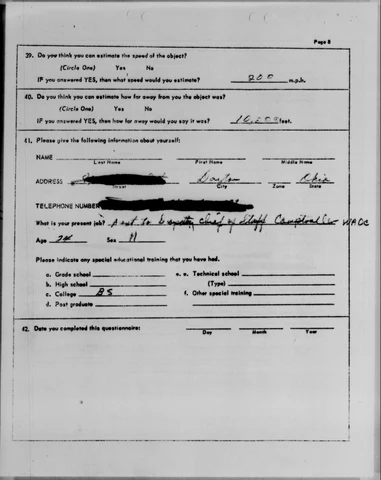 Page 8
39. Do you think you can estimate the speed of the object?
(Circle One) Yes No
IF you answered YES, then what speed would you estimate? 200 m.p.h.
40. Do you think you can estimate how far away from you the object was?
(Circle One) Yes No
IF you answered YES, then how far away would you say it was? feet.
41. Please give the following information about yourself:
NAME
Last Name First Name Middle Name
ADDRESS Dayton Ohio
Street City Zone State
TELEPHONE NUMBER
What is your present job? Asst to Deputy Chief of Staff Comptroller WADC
Age 24 Sex M
Please indicate any special educational training that you have had.
a. Grade school e. Technical school
b. High school (Type)
c. College BS f. Other special training
d. Post graduate
42. Date you completed this questionnaire:
Day Month Year